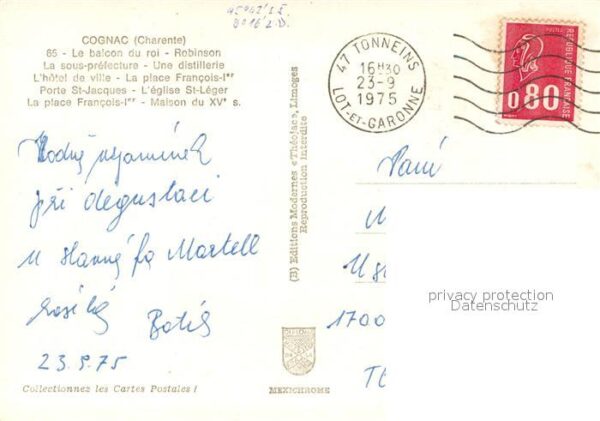 COGNAC (Charente)
65 - Le balcon du roi - Robinson
La sous-préfecture - Une distillerie
L'hôtel de ville - La place François-Iᵉʳ
Porte St-Jacques - L'église St-Léger
La place François-Iᵉʳ - Maison du XVᵉ s.
47 TONNEINS
16H30
23-9
1975
LOT-ET-GARONNE
REPUBLIQUE FRANÇAISE
0,80
Hodně vzpomínek
při degustaci
u slavné fy Martell
Boták
23.9.75
Collectionnez les Cartes Postales !
(B) Editions Modernes « Théojac », Limoges
Reproduction Interdite
MEXICHROME
Paní
1700
privacy protection
Datenschutz